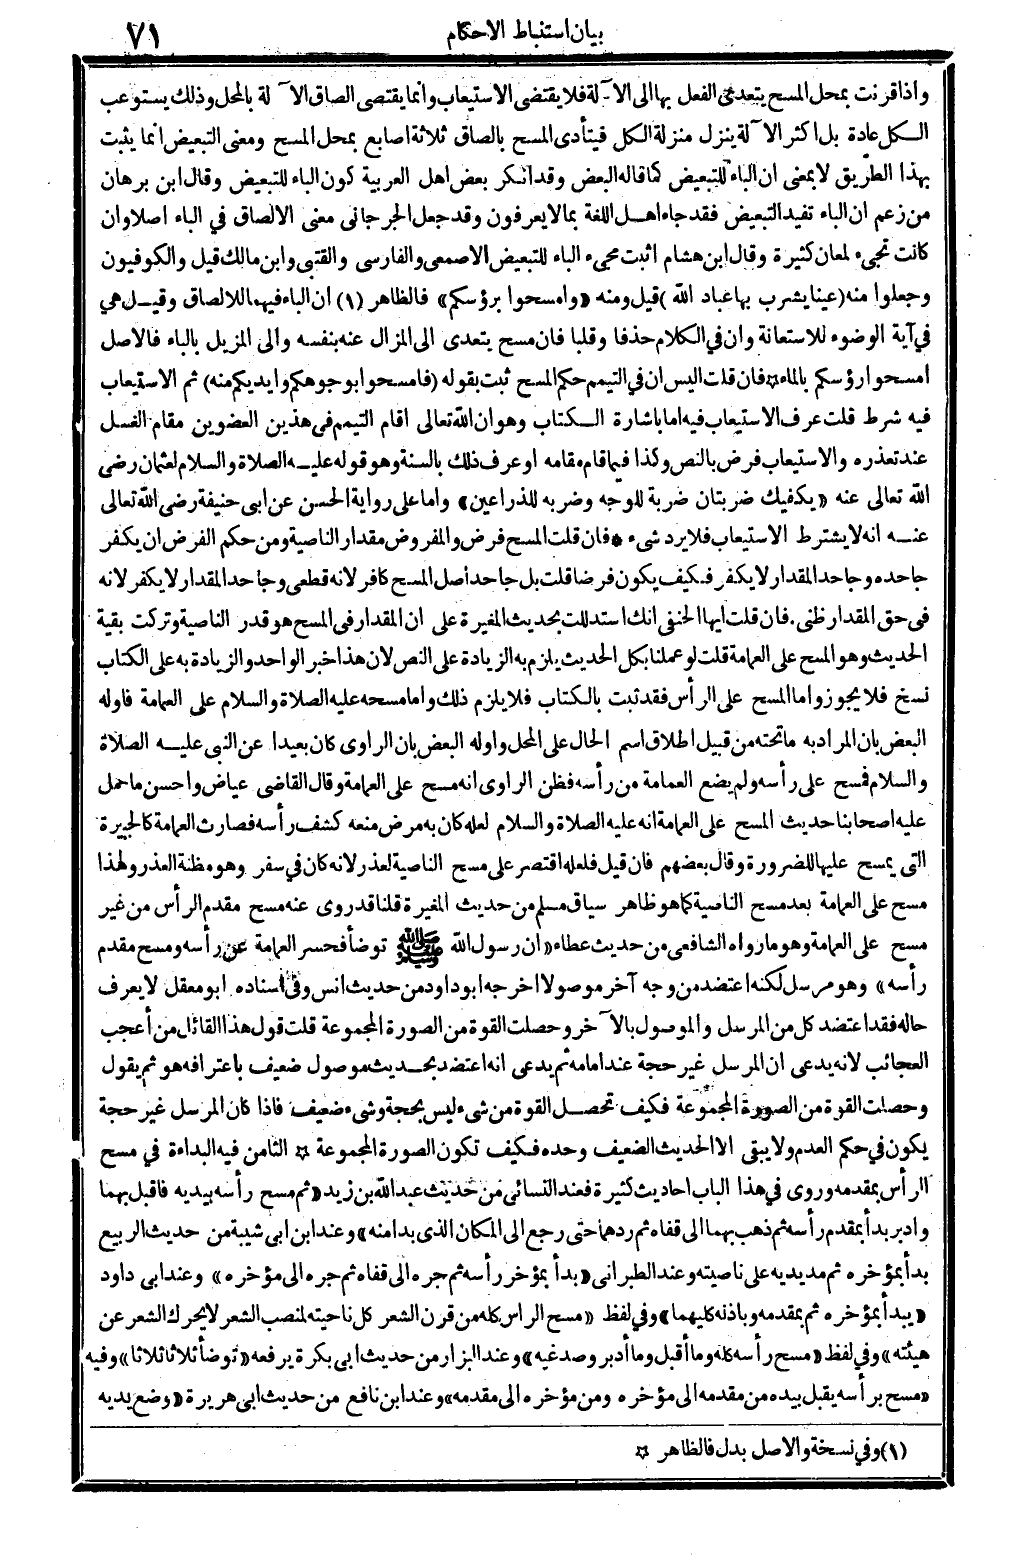 بيان استنباط الاحكام
٧١
واذا قرنت بمحل المسح يتعدى الفعل بها الى الآلة فلا يقتضى الاستيعاب وانما يقتضى الصاق الآلة بالمحل وذلك يستوعب
الكل عادة بل اكثر الآلة ينزل منزلة الكل فيتأدى المسح بالصاق ثلاثة اصابع بمحل المسح ومعنى التبعيض انما يثبت
بهذا الطريق لا بمعنى ان الباء للتبعيض كما قاله البعض وقد انكر بعض اهل العربية كون الباء للتبعيض وقال ابن برهان
من زعم ان الباء تفيد التبعيض فقد جاء اهل اللغة بما لا يعرفون وقد جعل الجرجانى معنى الالصاق في الباء اصلا وان
كانت تجىء لمعان كثيرة وقال ابن هشام اثبت مجىء الباء للتبعيض الاصمعى والفارسى والقتبى وابن مالك قيل والكوفيون
وجعلوا منه (عينا يشرب بها عباد الله) قيل ومنه «وامسحوا برؤسكم» فالظاهر (١) ان الباء فيهما للالصاق وقيل هي
في آية الوضوء للاستعانة وان في الكلام حذفا وقلبا فان مسح يتعدى الى المزال عنه بنفسه والى المزيل بالباء فالاصل
امسحوا رؤسكم بالماء ☆ فان قلت اليس ان في التيمم حكم المسح ثبت بقوله (فامسحوا بوجوهكم وايديكم منه) ثم الاستيعاب
فيه شرط قلت عرف الاستيعاب فيه اما باشارة الكتاب وهو ان الله تعالى اقام التيمم في هذين العضوين مقام الغسل
عند تعذره والاستيعاب فرض بالنص وكذا فيما قام مقامه او عرف ذلك بالسنة وهو قوله عليه الصلاة والسلام لعثمان رضى
الله تعالى عنه «يكفيك ضربتان ضربة للوجه وضربه للذراعين» واما على رواية الحسن عن ابى حنيفة رضى الله تعالى
عنه انه لا يشترط الاستيعاب فلا يرد شىء * فان قلت المسح فرض والمفروض مقدار الناصية ومن حكم الفرض ان يكفر
جاحده وجاحد المقدار لا يكفر فكيف يكون فرضا قلت بل جاحد أصل المسح كافر لانه قطعى وجاحد المقدار لا يكفر لانه
في حق المقدار ظنى. فان قلت ايها الحنفى انك استدللت بحديث المغيرة على ان المقدار في المسح هو قدر الناصية وتركت بقية
الحديث وهو المسح على العمامة قلت لو عملنا بكل الحديث يلزم به الزيادة على النص لان هذا خبر الواحد والزيادة به على الكتاب
نسخ فلا يجوز واما المسح على الرأس فقد ثبت بالكتاب فلا يلزم ذلك واما مسحه عليه الصلاة والسلام على العمامة فاوله
البعض بان المراد به ما تحته من قبيل اطلاق اسم الحال على المحل واوله البعض بان الراوى كان بعيدا عن النبى عليه الصلاة
والسلام فمسح على رأسه ولم يضع العمامة من رأسه فظن الراوى انه مسح على العمامة وقال القاضى عياض واحسن ما حمل
عليه اصحابنا حديث المسح على العمامة انه عليه الصلاة والسلام لعله كان به مرض منعه كشف رأسه فصارت العمامة كالجبيرة
التى يمسح عليها للضرورة وقال بعضهم فان قيل فلعله اقتصر على مسح الناصية لعذر لانه كان في سفر وهو مظنة العذر ولهذا
مسح على العمامة بعد مسح الناصية كما هو ظاهر سياق مسلم من حديث المغيرة قلنا قد روى عنه مسح مقدم الرأس من غير
مسح على العمامة وهو ما رواه الشافعى من حديث عطاء «ان رسول الله ﷺ توضأ فحسر العمامة عن رأسه ومسح مقدم
رأسه» وهو مرسل لكنه اعتضد من وجه آخر موصولا اخرجه ابو داود من حديث انس وفي اسناده ابو معقل لا يعرف
حاله فقد اعتضد كل من المرسل والموصول بالآخر وحصلت القوة من الصورة المجموعة قلت قول هذا القائل من أعجب
العجائب لانه يدعى ان المرسل غير حجة عند امامه ثم يدعى انه اعتضد بحديث موصول ضعيف باعترافه هو ثم يقول
وحصلت القوة من الصورة المجموعة فكيف تحصل القوة من شىء ليس بحجة وشىء ضعيف فاذا كان المرسل غير حجة
يكون في حكم العدم ولا يبقى الا الحديث الضعيف وحده فكيف تكون الصورة المجموعة ☆ الثامن فيه البداءة في مسح
الرأس بمقدمه وروى في هذا الباب احاديث كثيرة فعند النسائى من حديث عبد الله بن زيد «ثم مسح رأسه بيديه فاقبل بهما
وادبر بدأ بمقدم رأسه ثم ذهب بهما الى قفاه ثم ردهما حتى رجع الى المكان الذى بدا منه» وعند ابن ابى شيبة من حديث الربيع
بدأ بمؤخره ثم مد يديه على ناصيته وعند الطبرانى «بدأ بمؤخر رأسه ثم جره الى قفاه ثم جره الى مؤخره» وعند ابى داود
«يبدأ بمؤخره ثم بمقدمه وباذنه كليهما» وفي لفظ «مسح الراس كله من قرن الشعر كل ناحيته لمنصب الشعر لا يحرك الشعر عن
هيئته» وفي لفظ «مسح رأسه كله وما أقبل وما أدبر وصدغيه» وعند البزار من حديث ابى بكرة يرفعه «توضأ ثلاثا ثلاثا» وفيه
«مسح برأسه يقبل بيده من مقدمه الى مؤخره ومن مؤخره الى مقدمه» وعند ابن نافع من حديث ابى هريرة «وضع يديه
(١) وفي نسخة والاصل بدل فالظاهر ☆